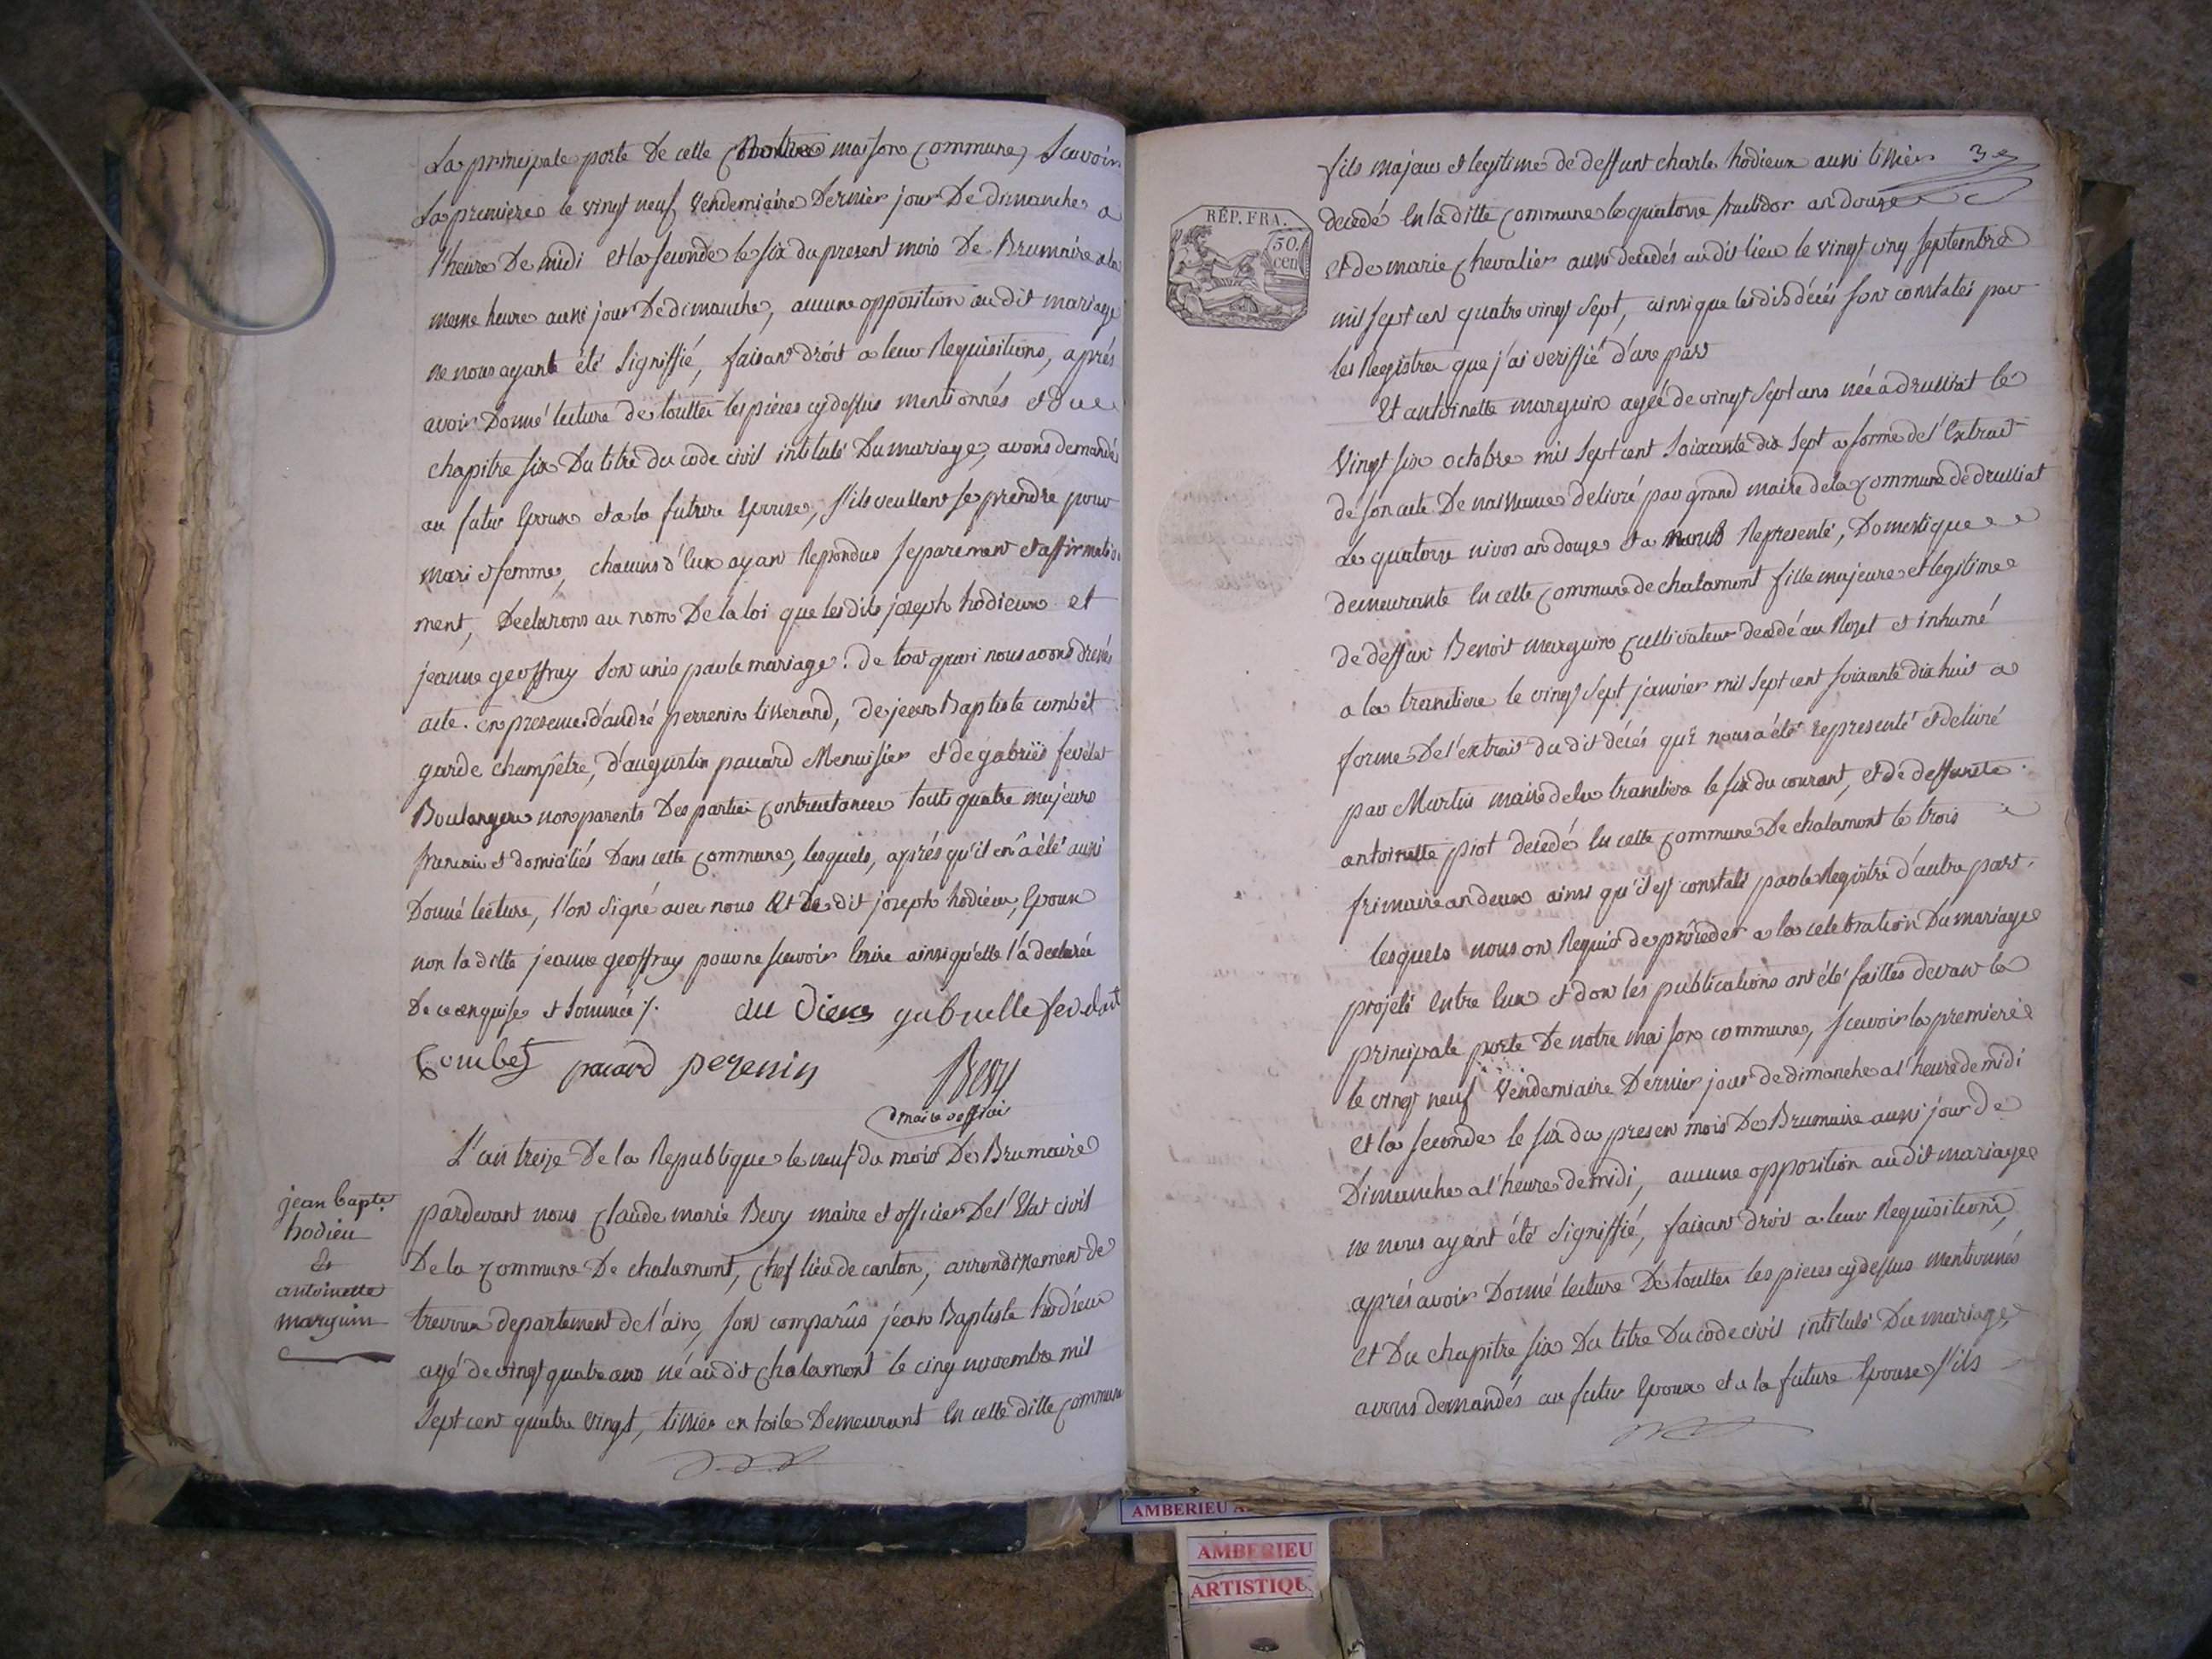 La principale porte de cette maison Commune, Scavoir
La premiere le vingt neuf Vendemiaire Dernier jour De dimanche a
l'heure De midi et la seconde le six du present mois De Brumaire a la
meme heure aussi jour De dimanche, aucune opposition au dit mariage
ne nous ayant été Signiffié, faisant droit a leur Requisitions, aprés
avoir Donné lecture de toutter les pieces cy dessus mentionnés et du
chapitre six Du titre du code civil intitulé Du mariage, avons demandé
au futur Epoux et a la future Epouse, s'ils veullent se prendre pour
mari et femme, chacuns d'Eux ayant Repondus separement et affirmative
ment, Declarons au nom De la loi que les dits joseph hodieux et
jeanne geoffray son unis par le mariage. de tout quoi nous avons dressés
acte. En presence d'andré perrenin tisserand, de jean Baptiste combet
garde champêtre, d'augustin pacard Menuisier et de gabriël fevelat
Boulangers non parents Des partier Contractances touts quatre majeurs
francais et domiciliés Dans cette Commune, lesquels, aprés qu'il en a été aussi
Donné lecture, l'on signé avec nous Et Le dit joseph hodieu, Epoux
non la ditte jeanne geoffray pour ne scavoir Ecrire ainsi qu'elle l'a declarée
De ce enquise et Sommée ./. au Dieux gabrielle fevelat
Combet pacard perenin Bevy
maire
L'an treize De la Republique le neuf du mois De Brumaire
pardevant nous Claude marie Bevy maire et officier De l'Etat civil
De la Commune De chalamont, Chef lieu de canton, arrondissement de
trevoux departement de l'ain, son comparûs jean Baptiste hodieu
agé de vingt quatre ans né au dit Chalamont le cinq novembre mil
Sept cent quatre vingt, tissier en toile Demeurant En cette ditte Commune
jean bapte
hodieu
&
antoinette
marguin
3e
RÉP. FRA.
50.
cen
fils majeur et legitime de deffunt charle hodieux aussi tissier
decedé En la ditte Commune le quatorse fructidor an douze
et de marie Chevalier aussi decedés au dit lieu le vingt cinq septembre
mil sept cent quatre vingt sept, ainsi que les dits décés son constatés par
les Registres que j'ai veriffié d'une part
Et antoinette marguin agée de vingt sept ans née a drussiat le
Vingt six octobre mil sept cent soixante dix sept a forme de l'Extrait
de son acte De naissance delivré par grand maire de la Commune de drussiat
Le quatorse nivos an douze et a nous Representé, Domestique
demeurante En cette Commune de chalamont fille majeure et legitime
de deffunt Benoit marguin Cultivateur decedé au Rozet et inhumé
a la trancliere le vingt sept janvier mil sept cent soixante dix huit a
forme De l'extrait du dit décés qui nous a été representé et delivré
par Martin maire de la trancliere le six du courant, et de deffunte
antoinette piot decedé En cette Commune De chalamont le trois
frimaire an deux ainsi qu'il est constaté par le Registre d'autre part.
lesquels nous ont Requis de proceder a la celebration Du mariage
projeté Entre Eux et dont les publications ont été faittes devant la
principale porte De notre maison commune, scavoir la premiere
le vingt neuf Vendemiaire Dernier jour de dimanche a l'heure de midi
et la seconde le six du present mois De Brumaire aussi jour de
Dimanche a l'heure de midi, aucune opposition au dit mariage
ne nous ayant été signiffié, faisant droit a leur Requisitions,
aprés avoir Donné lecture De toutter les pieces cy dessus mentionnés
et Du chapitre six Du titre Du code civil intitulé Du mariage,
avons demandés au futur Epoux et a la future Epouse s'ils
AMBERIEU
AMBERIEU
ARTISTIQU